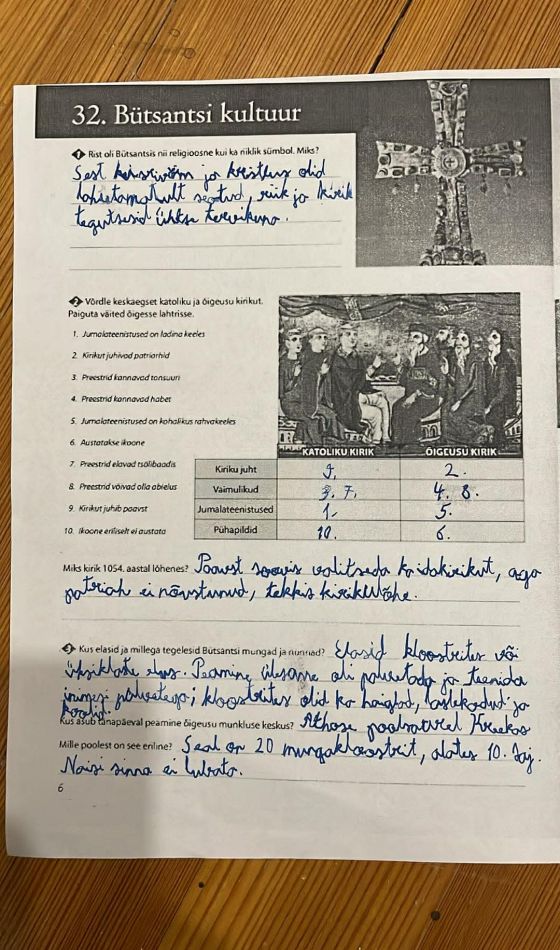 32. Bütsantsi kultuur
1 Rist oli Bütsantsis nii religioosne kui ka riiklik sümbol. Miks?
Sest ja kristlus olid
lahutamatult seotud, riik ja kirik
tegutsesid ühtse tervikuna.
2 Võrdle keskaegset katoliku ja õigeusu kirikut.
Paiguta väited õigesse lahtrisse.
1. Jumalateenistused on ladina keeles
2. Kirikut juhivad patriarhid
3. Preestrid kannavad tonsuuri
4. Preestrid kannavad habet
5. Jumalateenistused on kohalikus rahvakeeles
6. Austatakse ikoone
7. Preestrid elavad tsölibaadis
8. Preestrid võivad olla abielus
9. Kirikut juhib paavst
10. Ikoone eriliselt ei austata
KATOLIKU KIRIK ÕIGEUSU KIRIK
Kiriku juht 9. 2.
Vaimulikud 3. 7. 4. 8.
Jumalateenistused 1. 5.
Pühapildid 10. 6.
Miks kirik 1054. aastal lõhenes? Paavst soovis valitseda ka idakirikut, aga
patriarh ei nõustunud, tekkis kirikulõhe.
3 Kus elasid ja millega tegelesid Bütsantsi mungad ja nunnad? Elasid kloostrites või
üksiklaste elus. Peamine ülesanne oli palvetada ja teenida
inimesi palvetega; kloostrites olid ka haiglad, lastekodud ja
koolid.
Kus asub tänapäeval peamine õigeusu munkluse keskus? Athose poolsaarel Kreekas
Mille poolest on see eriline? Seal on 20 mungakloostrit, alates 10. saj.
Naisi sinna ei lubata.
6